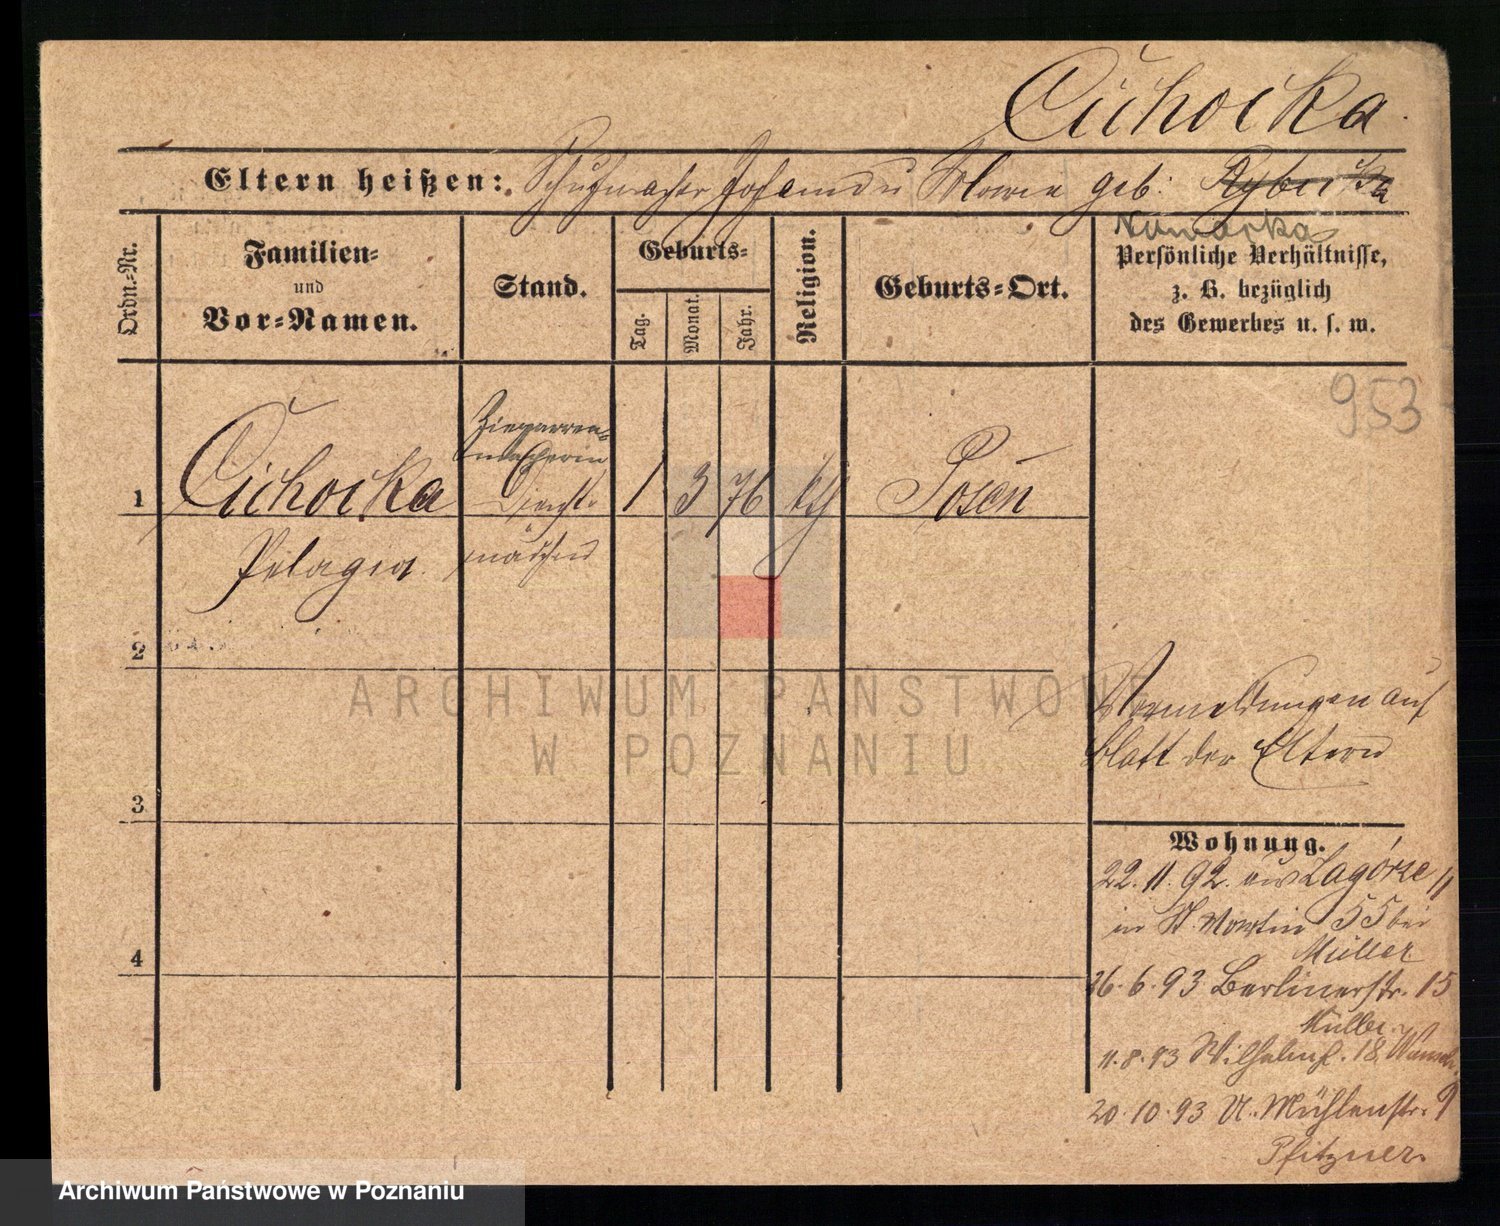 Cichocka
Eltern heißen: Schuhmacher Johann u Maria geb: Rybicka
Nawacka
Ordn.-Nr.
Familien-
und
Vor-Namen.
Stand.
Geburts-
Tag.
Monat.
Jahr.
Religion.
Geburts-Ort.
Persönliche Verhältnisse,
z. B. bezüglich
des Gewerbes u. s. w.
953
Zigarren-
macherin
1 Cichocka Dienst- 1 3 76 kth Posen
Pelagia. mädchen
2
ARCHIWUM PAŃSTWOWE
W POZNANIU
Vermeldungen auf
Blatt der Eltern
3
Wohnung.
22. 11. 92. aus Zagórze 11
in St. Martin 55 bei
Müller
4
26. 6. 93 Berlinerstr. 15
Müller
11. 8. 93 Wilhelmpl. 18
20. 10. 93 U. Mühlenstr. 9
Pfitzner
Archiwum Państwowe w Poznaniu